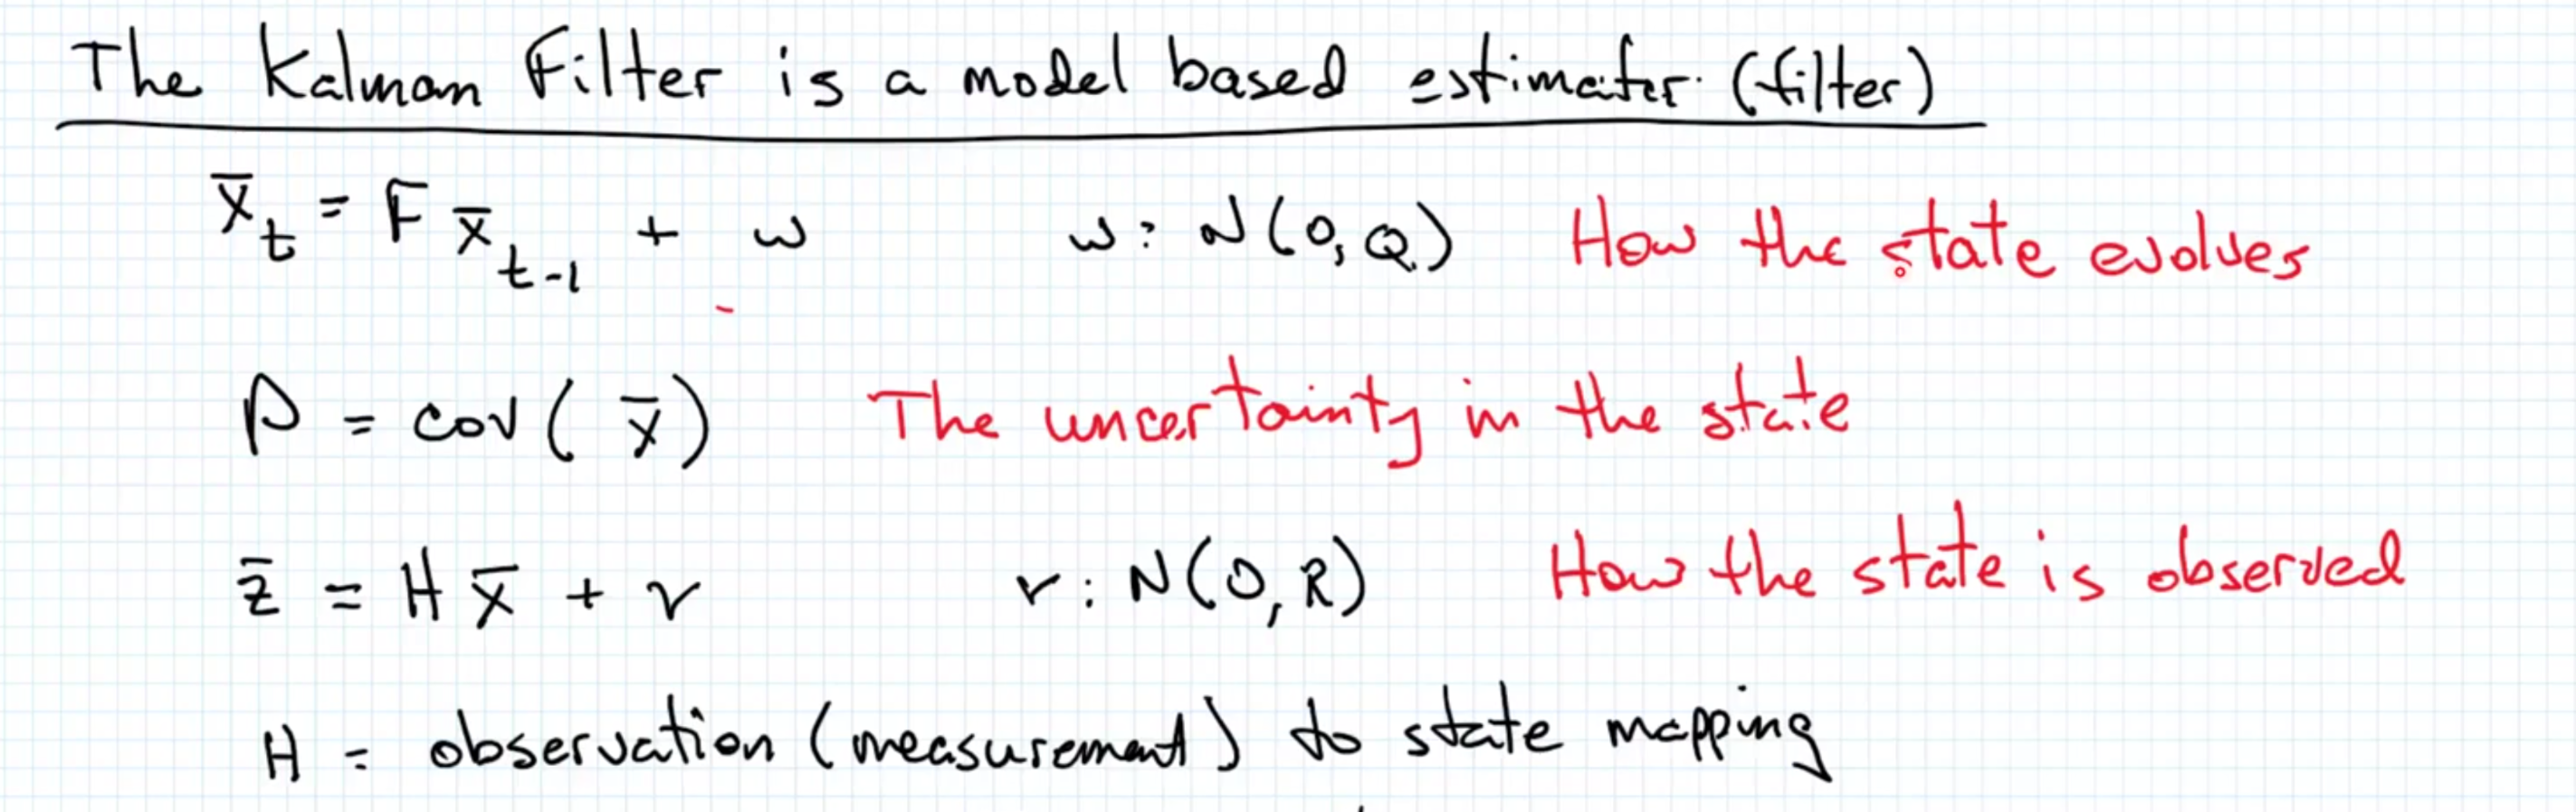 The Kalman Filter is a model based estimator (filter)
x̄_t = F x̄_{t-1} + w    w: N(0, Q)    How the state evolves
P = cov(x̄)    The uncertainty in the state
z̄ = H x̄ + r    r: N(0, R)    How the state is observed
H = observation (measurement) to state mapping